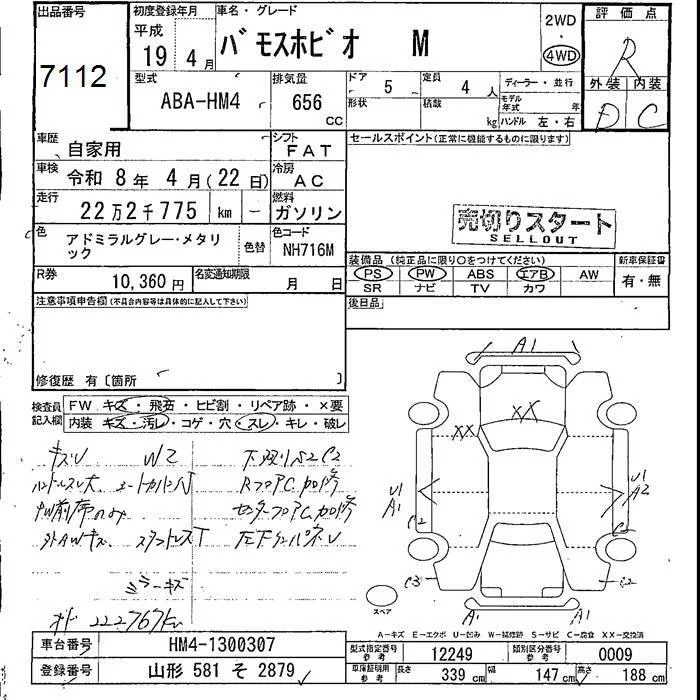 出品番号
7112
初度登録年月
平成
19年 4月
車名・グレード
バモスホビオ M
2WD
・
4WD
評価点
R
外装 内装
D C
型式
ABA-HM4
排気量
656
CC
ドア
5
形状
定員
4人
積載
kg
ディーラー・並行
モデル年式 年
ハンドル 左・右
車歴
自家用
シフト
FAT
車検
令和 8年 4月(22日)
冷房
AC
走行
22万2千775 km ー
燃料
ガソリン
色
アドミラルグレー・メタリック
色替
色コード
NH716M
R券
10,360円
名変通知期限
月 日
セールスポイント(正常に機能するものに限ります)
売切りスタート
SELLOUT
装備品 (純正品に限り○をつけてください)
PS PW ABS エアB AW
SR ナビ TV カワ
新車保証書
有・無
後日品
注意事項申告欄(不具合内容等は具体的に記入して下さい)
修復歴 有〔箇所 〕
検査員記入欄
FW キズ・飛石・ヒビ割・リペア跡・×要
内装 キズ・汚レ・コゲ・穴・スレ・キレ・破レ
キズU W2
ハンドルスレ大
前席のみ
外AWキズ スタッドレスT
ミラーキズ
222767km
A1
XX
XX
U1
A1
C2
C3
U1
A2
C2
A1
A1
スペア
A－キズ E－エクボ U－凹み W－補修跡 S－サビ C－腐食 XX－交換済
車台番号
HM4-1300307
登録番号
山形 581 そ 2879
型式指定番号
参考
12249
類別区分番号
参考
0009
車庫証明用
参考
長さ 339 cm
幅 147 cm
高さ 188 cm